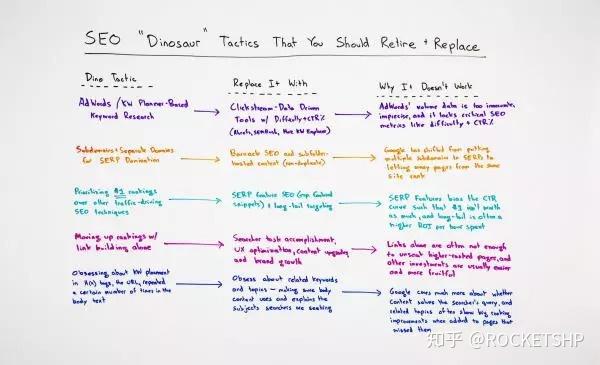 SEO "Dinosaur" Tactics That You Should Retire + Replace
Dino Tactic
Replace It With
Why It Doesn't Work
AdWords / KW Planner-Based
Keyword Research
Clickstream-Data Driven
Tools w/ Difficulty + CTR%
(Ahrefs, SEMRush, Moz KW Explorer)
AdWords' volume data is too inaccurate,
imprecise, and it lacks critical SEO
metrics like difficulty + CTR%
Subdomains + Separate Domains
for SERP Domination
Barnacle SEO and subfolder-
hosted content (non-duplicate)
Google has shifted from putting
multiple subdomains in SERPs to
letting many pages from the same
site rank
Prioritizing #1 rankings
over other traffic-driving
SEO techniques
SERP feature SEO (esp. featured
snippets) + long-tail targeting
SERP Features bias the CTR
curve such that #1 isn't worth
as much, and long-tail is often a
higher ROI per hour spent
Moving up rankings w/
link building alone
Searcher task accomplishment,
UX optimization, content upgrades,
and brand growth
Links alone are often not enough
to unseat higher-ranked pages, and
other investments are usually easier
and more fruitful
Obsessing about KW placement
in H(x) tags, the URL, repeated
a certain number of times in the
body text
Obsess about related keywords
and topics - making sure body
content uses and explains the
subjects searchers are seeking
Google cares much more about whether
content solves the searcher's query, and
related topics often show big ranking
improvements when added to pages that
missed them
知乎 @ROCKETSHP